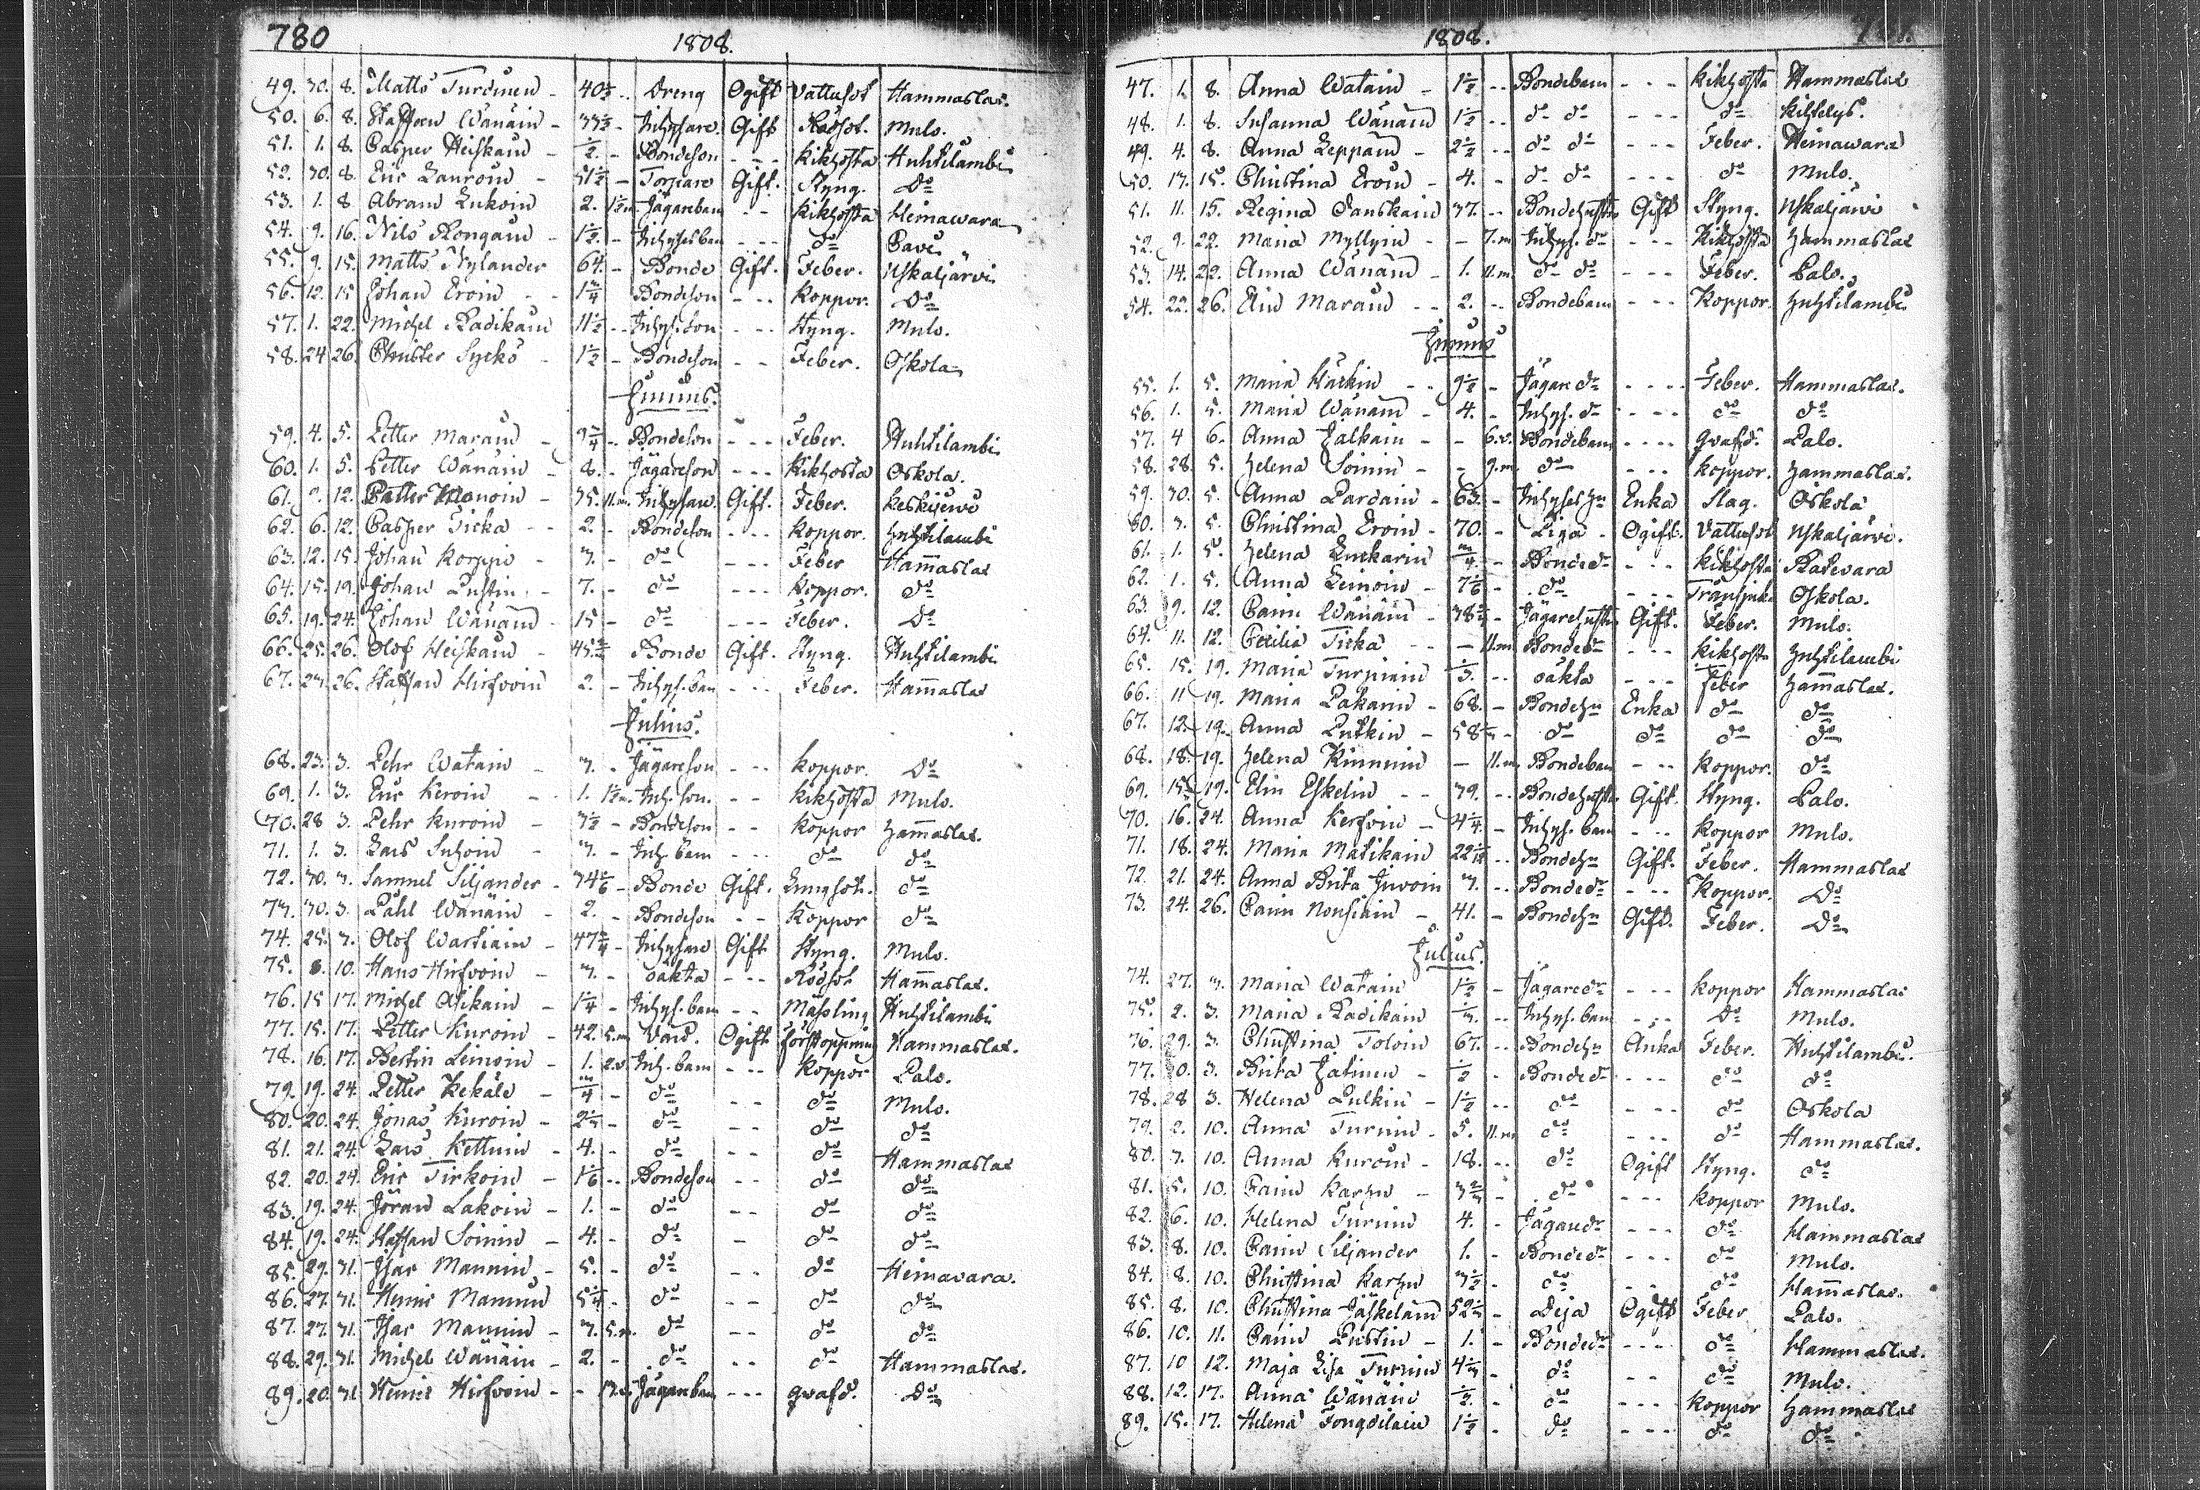 780
1808.
49. 30. 8. Matts Turunen - 40½ - Dreng Ogift Vattusot Hammaslax.
50. 6. 8. Staffan Wänäin - 33½ - Inhysare Gift Rödsot. Mulo.
51. 1. 8. Casper Heiskain - ½. - Bondeson - - - Kikhosta Huhtilambi
52. 30. 8. Eric Lauroin - 51½ - Torpare Gift. Styng. do
53. 1. 8 Abram Lukoin 2. Jägarebarn - - Kikhosta Heinawara
54. 9. 16. Nils Rongain - 1½. - Inhysesbarn - - - do
55. 9. 15. Matts Nylander 64. - Bonde Gift. Feber. Uskaljärvi
56. 12. 15 Johan Eroin - - Bondeson - - - Koppor. do
57. 1. 22. Michel Radikain 11½ - - Inhys. son - - - Styng. Mulo.
58. 24 26. Christer Sycko - 1½ - Bondeson - - Feber. Oskola
Junius.
59. 4. 5. Petter Marain - 9¾ - Bondeson - - - Feber. Huhtilambi
60. 1. 5. Petter Wänäin - 8. - Jägareson - - - Kikhosta Oskola.
61. 12. Petter - 35. 11.m. Inhysare. Gift. Feber.
62. 6. 12. Casper Ticka - - 2. - Bondeson - - - Koppor. Huhtilambi
63. 12. 15. Johan Korppi - 3. - do - - - Feber Hammaslax
64. 15. 19. Johan Lustin - 7. - do - - - Koppor. do
65. 19. 24. Johan Wänäin - 15 - do - - - Feber. do
66. 25. 26. Olof Heiskain - Bonde Gift. Styng. Huhtilambi
67. 23. 26. Staffan Hirfvoin 2. - Inhys. barn - - - Feber. Hammaslax
Julius.
68. 23. 3. Pehr Watain - 3. - Jägareson - - - Koppor. do
69. 1. 3. Eric Keroin - 1. Inh. son. - - Kikhosta Mulo.
70. 28 3. Pehr Kuroin - 3½ - Bondeson - - Koppor Hammaslax.
71. 1. 3. Lars Suhoin - 3. - Inh. barn - - - do do
72. 30. 3. Samuel Siljander - - Bonde Gift. Lungsot. do
73. 30. 3. Påhl Wänäin - 2. - Bondeson - - Koppor do
74. 25. 3. Olof Wartiain - 47 - Inhysare Gift Styng. Mulo.
75. 10. Hans Hirfvoin - 3. - oäkta - - - Rödsot Hammaslax.
76. 15 17. Michel Asikain - 1¼ - Inhys. barn - - Mässling Huhtilambi
77. 15. 17. Petter Kuroin - 42. 5.m Ogift förstoppning Hammaslax.
78. 16. 17. Bertin Leinoin - 1. Inh. barn - - - Koppor Palo.
79. 19. 24. Petter Kekäle - ¾ - do - - do Mulo.
80. 20. 24. Jonas Kuroin - - do - - do do
81. 21. 24. Lars Kettuin - 4. - do - - do Hammaslax
82. 20. 24. Eric Tirkoin - - - Bondeson - - do do
83. 19. 24. Jöran Lakoin - 1. - do - - do do
84. 19. 24. Staffan Soinin - 4. - do - do do
85. 29. 31. Isac Mannin - 5. - do - - do Heinavara.
86. 27. 31. Henric Mannin 5¼ - do - - do do
87. 27. 31. Isac Mannin - 3. 5.m. do - - do do
88. 29. 31. Michel Wänäin - 2. - do - - do Hammaslax.
89. 20. 31 Henric Hirfvoin - - Jägarebarn - - - qvafd. do
1808.
47. 1. 8. Anna Watain - 1½ - - Bondebarn - - - Kikhosta Hammaslax
48. 1. 8. Susanna Wänäin 1½ - - do do - - - do Kihtelys.
49. 4. 8. Anna Leppäin - 2½ - - do do - - - Feber. Heinawara
50. 13. 15. Christina Eroin - 4. - do do - - - do Mulo.
51. 11. 15. Regina Danskain 37. - - Bondehustru Gift Styng. Uskaljärvi
52. 9. 22. Maria Myllyin - - 7.m Inhys. do - - - Kikhosta Hammaslax
53. 14. 22. Anna Wänäin - 1. 11.m. do do - - - Feber. Palo.
54. 22. 26. Elin Marain - - 2. - - Bondebarn - - - Koppor. Huhtilambi
Junius
55. 1. 5. Maria Härkin - - 9½ - Jägare dr - - - - Feber. Hammaslax.
56. 1. 5. Maria Wänäin - 4. - Inhys. dr - - - - do do
57. 4 6. Anna Jalkain - - 6.v. Bondebarn - - - - qvafd. Palo.
58. 28. 5. Helena Soinin - - 9.m. do - - - Koppor. Hammaslax.
59. 30. 5. Anna Pardain - 63. - Inhyses hu Enka Slag. Oskola
60. 3. 5. Christina Eroin - 70. - Piga - Ogift. Vattusot Uskaljärvi.
61. 1. 5. Helena Luckarin ¾ - Bonde dr - - - Kikhosta Ratevara
62. 1. 5. Anna Leinoin - - do - - - Oskola.
63. 9. 12. Carin Wänäin - Jägarehustru Gift. Feber. Mulo.
64. 11. 12. Cecilia Ticka - - - 11.m Bonde dr - - - Kikhosta Huhtilambi
65. 15. 19. Maria Turpiain - - oäkta - - - Feber Hammaslax.
66. 11 19. Maria Pakarin - 68. - Bondehu Enka do do
67. 12. 19. Anna Putkin - - do do do do
68. 18. 19. Helena Kinnunin - 11.m. Bondebarn - - Koppor. do
69. 15. 19. Elin Eskelin - - 39. - - Bondehustru Gift. Styng. Palo.
70. 16. 24. Anna Kerfvoin - 4¼. - Inhys. barn - - - Koppor Mulo.
71. 18. 24. Maria Matikain 22 - - Bondehu Gift. Feber. Hammaslax
72. 21. 24. Anna Brita Juvoin 3. - - Bonde dr - - - Koppor. do
73. 24. 26. Carin Nousiain - 41. - Bondehu Gift. Feber. do
Julius.
74. 27. 3. Maria Watain 1½ - Jägare dr - - - Koppor Hammaslax
75. 2. 3. Maria Radikain - - Inhys. barn - - - do Mulo.
76. 29. 3. Christina Toloin 67. - - Bondehu Änka Feber. Huhtilambi.
77. 30. 3. Brita Jatinen - ½ - Bonde dr - - - do do
78. 28 3. Helena Pulkin - 1½ - - do - - - do Oskola
79. 2. 10. Anna Turuin - 5. 11.m do - - - do Hammaslax.
80. 3. 10. Anna Kuroin - 18. - - do Ogift Styng. do
81. 5. 10. Carin Karhu - - do - - - Koppor Mulo.
82. 6. 10. Helena Turuin 4. - Jägare dr - - - do Hammaslax
83. 8. 10. Carin Siljander 1. - Bonde dr - - - do Mulo.
84. 8. 10. Christina Karhu 3½ - do - - do Hammaslax.
85. 8. 10. Christina Jäskeläin 52 - Deja Ogift Feber Palo.
86. 10. 11. Carin Lustin - 1. - Bonde dr - - - do Hammaslax.
87. 10 12. Maja Lisa Turuin - do - - do Mulo.
88. 12. 17. Anna Wänäin - do - - - Koppor Hammaslax
89. 15. 17. Helena 1½ - do - - - do do